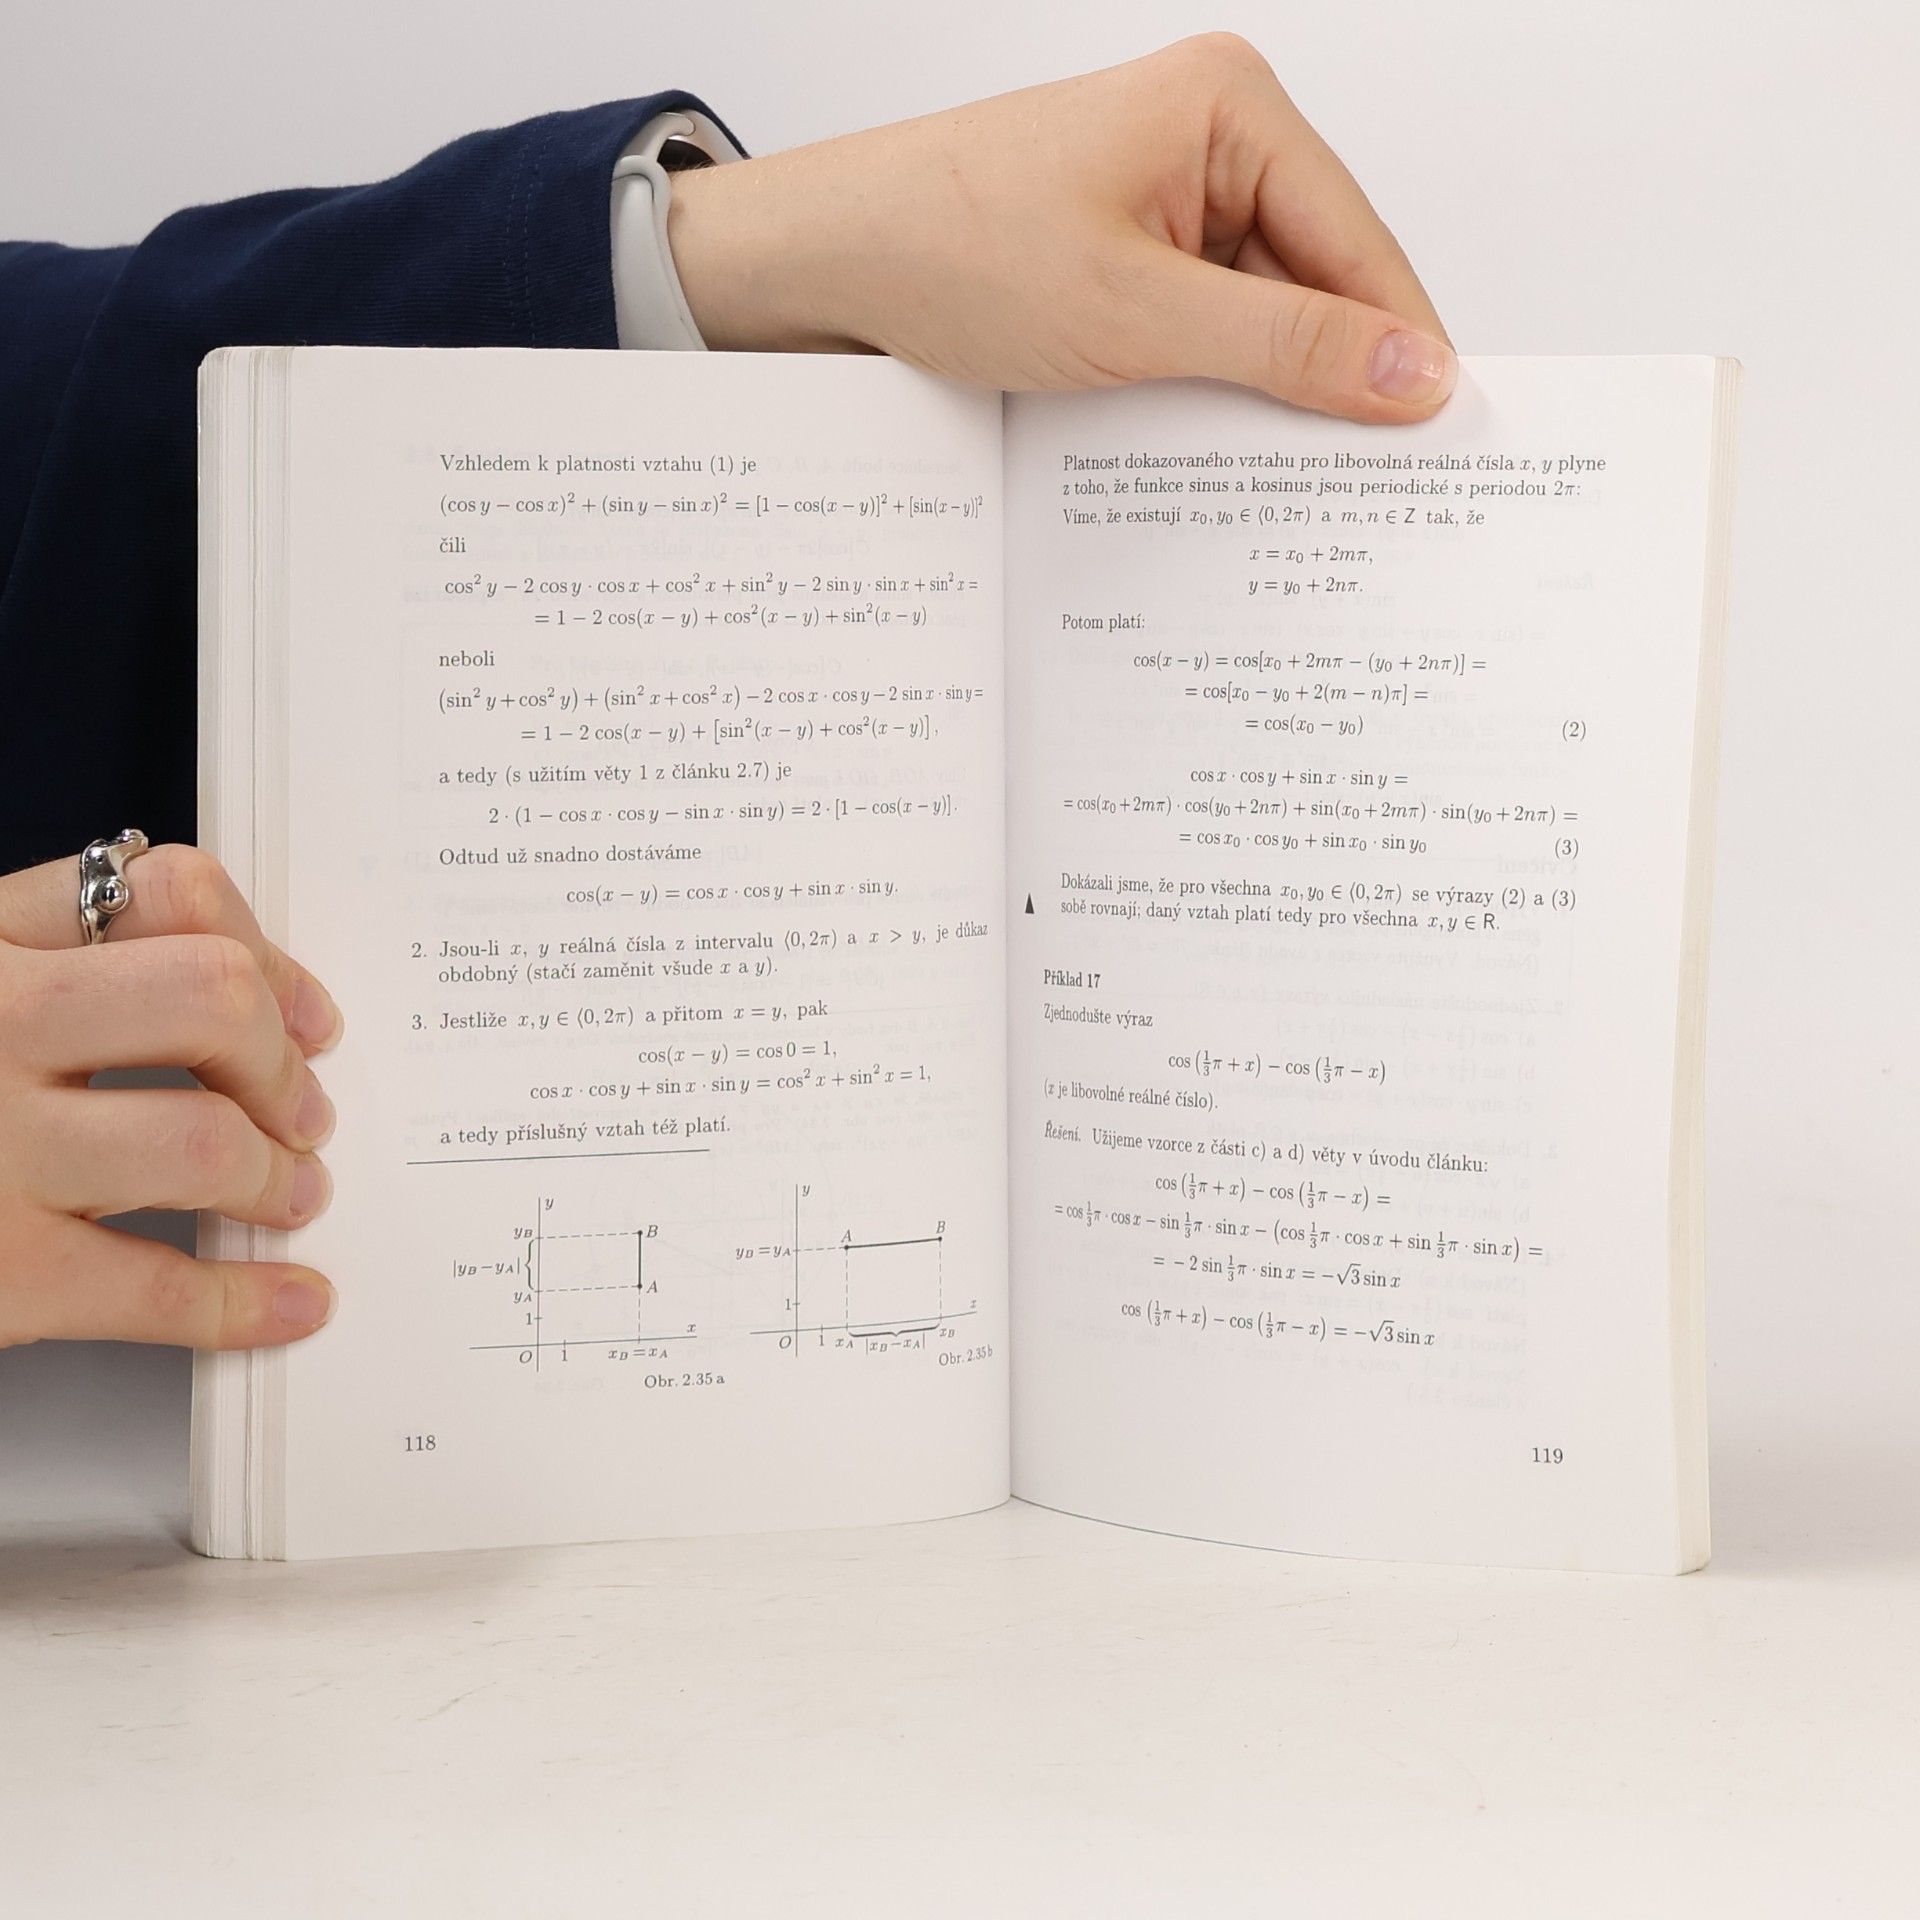 Vzhledem k platnosti vztahu (1) je
(cos y − cos x)² + (sin y − sin x)² = [1 − cos(x − y)]² + [sin(x − y)]²
čili
cos² y − 2 cos y · cos x + cos² x + sin² y − 2 sin y · sin x + sin² x =
= 1 − 2 cos(x − y) + cos²(x − y) + sin²(x − y)
neboli
(sin² y + cos² y) + (sin² x + cos² x) − 2 cos x · cos y − 2 sin x · sin y =
= 1 − 2 cos(x − y) + [sin²(x − y) + cos²(x − y)],
a tedy (s užitím věty 1 z článku 2.7) je
2 · (1 − cos x · cos y − sin x · sin y) = 2 · [1 − cos(x − y)].
Odtud už snadno dostáváme
cos(x − y) = cos x · cos y + sin x · sin y.
2. Jsou-li x, y reálná čísla z intervalu ⟨0, 2π) a x > y, je důkaz
obdobný (stačí zaměnit všude x a y).
3. Jestliže x, y ∈ ⟨0, 2π) a přitom x = y, pak
cos(x − y) = cos 0 = 1,
cos x · cos y + sin x · sin y = cos² x + sin² x = 1,
a tedy příslušný vztah též platí.
y
y_B
B
|y_B − y_A|
y_A
A
1
x
O 1 x_B = x_A
Obr. 2.35 a
y
A B
y_B = y_A
1
x
O 1 x_A |x_B − x_A| x_B
Obr. 2.35 b
118
Platnost dokazovaného vztahu pro libovolná reálná čísla x, y plyne
z toho, že funkce sinus a kosinus jsou periodické s periodou 2π:
Víme, že existují x₀, y₀ ∈ ⟨0, 2π) a m, n ∈ Z tak, že
x = x₀ + 2mπ,
y = y₀ + 2nπ.
Potom platí:
cos(x − y) = cos[x₀ + 2mπ − (y₀ + 2nπ)] =
= cos[x₀ − y₀ + 2(m − n)π] =
= cos(x₀ − y₀) (2)
cos x · cos y + sin x · sin y =
= cos(x₀ + 2mπ) · cos(y₀ + 2nπ) + sin(x₀ + 2mπ) · sin(y₀ + 2nπ) =
= cos x₀ · cos y₀ + sin x₀ · sin y₀ (3)
Dokázali jsme, že pro všechna x₀, y₀ ∈ ⟨0, 2π) se výrazy (2) a (3)
sobě rovnají; daný vztah platí tedy pro všechna x, y ∈ R.
Příklad 17
Zjednodušte výraz
cos (1/3 π + x) − cos (1/3 π − x)
(x je libovolné reálné číslo).
Řešení. Užijeme vzorce z části c) a d) věty v úvodu článku:
cos (1/3 π + x) − cos (1/3 π − x) =
= cos 1/3 π · cos x − sin 1/3 π · sin x − (cos 1/3 π · cos x + sin 1/3 π · sin x) =
= − 2 sin 1/3 π · sin x = −√3 sin x
cos (1/3 π + x) − cos (1/3 π − x) = −√3 sin x
119